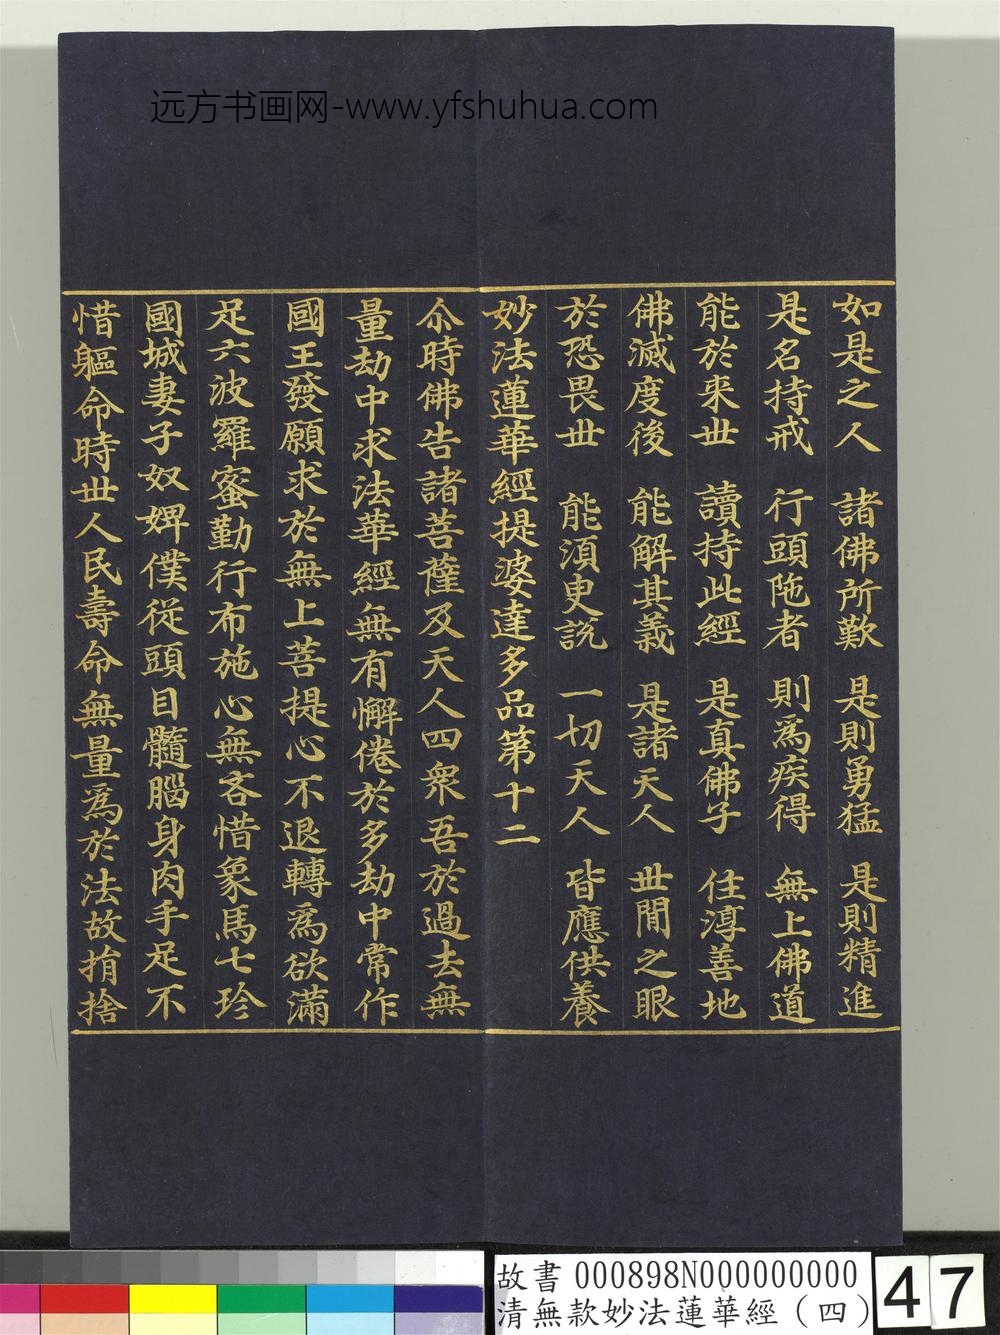 远方书画网-www.yfshuhua.com
如是之人 諸佛所歎 是則勇猛 是則精進
是名持戒 行頭陁者 則爲疾得 無上佛道
能於来世 讀持此經 是真佛子 住淳善地
佛滅度後 能解其義 是諸天人 世閒之眼
於恐畏世 能湏臾説 一切天人 皆應供養
妙法蓮華經提婆達多品第十二
尒時佛告諸菩薩及天人四衆吾於過去無
量劫中求法華經無有懈倦於多劫中常作
國王發願求於無上菩提心不退轉爲欲滿
足六波羅蜜勤行布施心無吝惜象馬七珍
國城妻子奴婢僕從頭目髓腦身肉手足不
惜軀命時世人民壽命無量爲於法故捐捨
故書 000898N000000000
清無款妙法蓮華經（四）
47